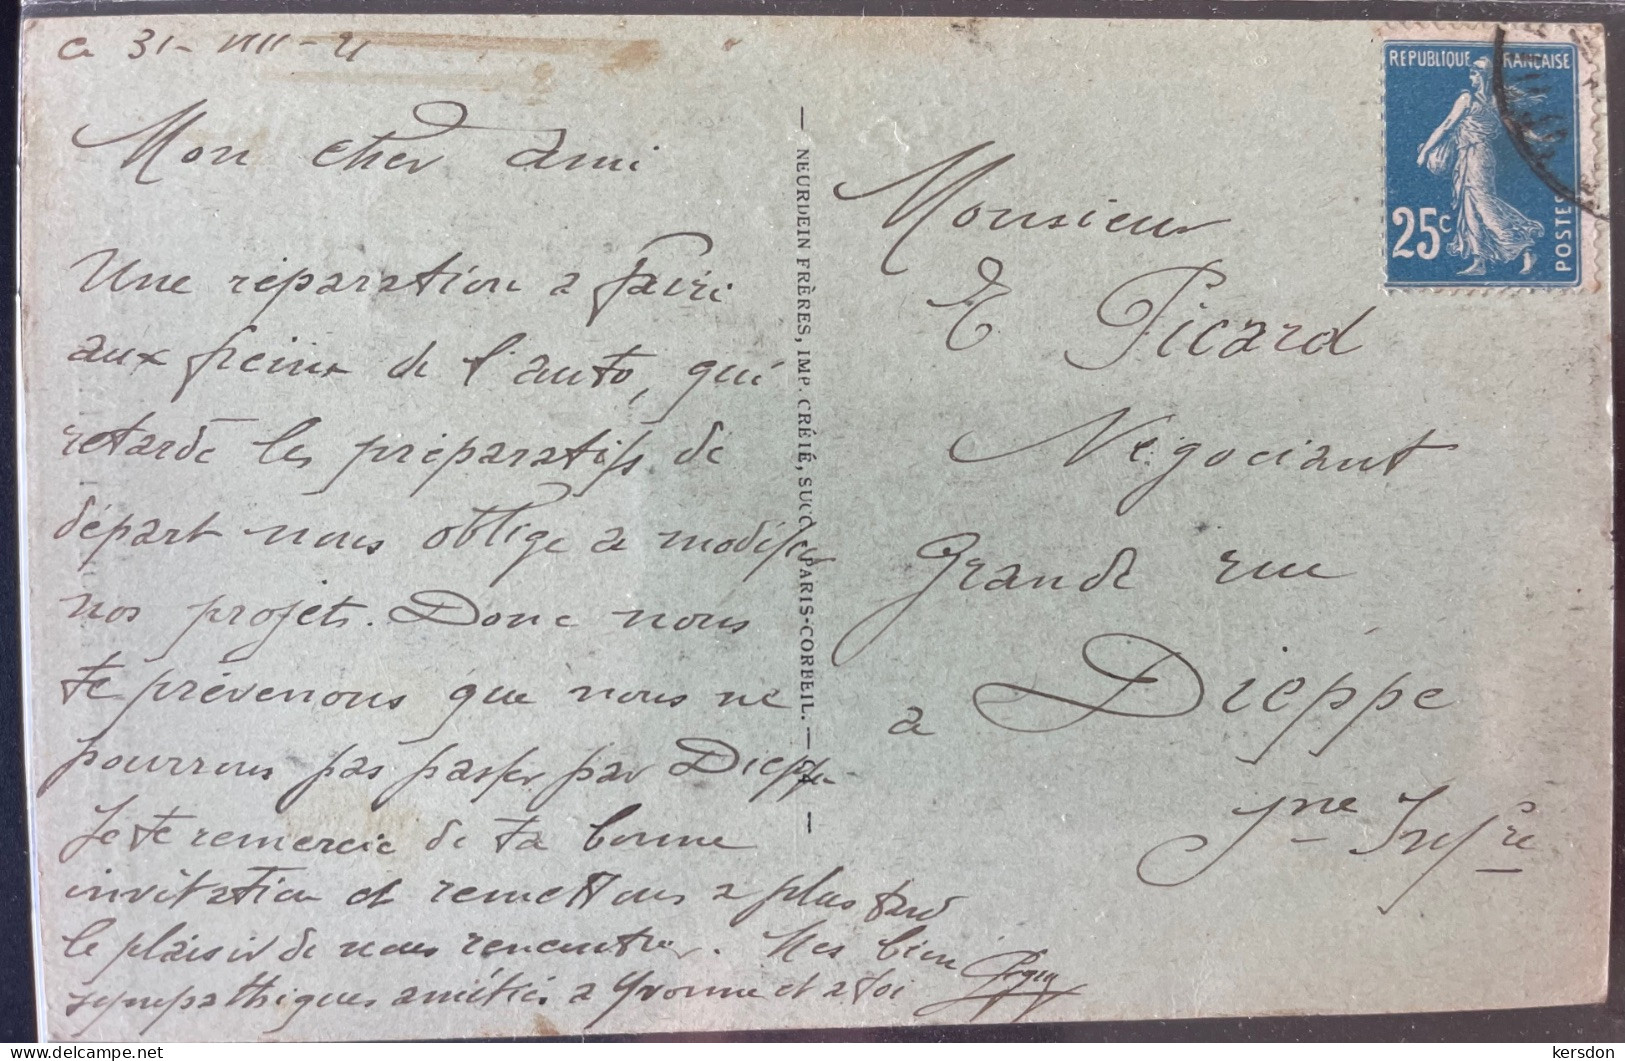 Ce 31-VIII-21
Mon cher ami
Une réparation a faire
aux freins de l'auto, qui
retarde les préparatifs de
départ nous oblige a modifier
nos projets. Donc nous
te prévenons que nous ne
pourrons pas passer par Dieppe
Je te remercie de ta bonne
invitation et remettons a plus tard
le plaisir de nous rencontrer. Mes bien
sympathiques amitiés a Yvonne et a toi
NEURDEIN FRÈRES, IMP. CRÉTÉ, SUCC., PARIS-CORBEIL.
REPUBLIQUE FRANÇAISE
25c
POSTES
Monsieur
E Picard
Négociant
Grande rue
a Dieppe
Sne Infre
kersdon